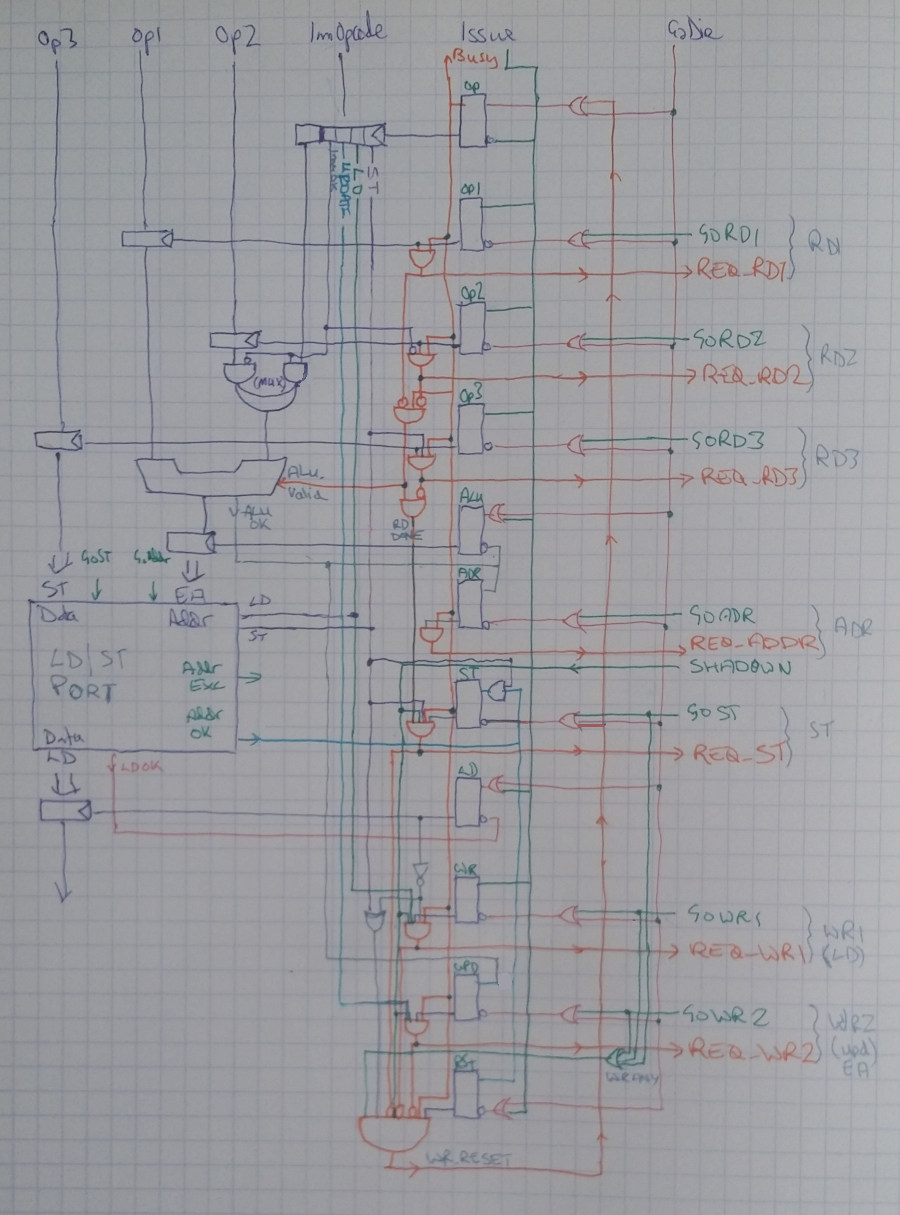 Op3 Op1 Op2 ImOpcode Issue GoDie
Busy
Op
ST
LD
UPDATE
Op1
GORD1
REQ_RD1
RD1
Op2
GORD2
REQ_RD2
RD2
(mux)
Op3
GORD3
REQ_RD3
RD3
ALU
Valid
ALU
OK
ALU
RD
DONE
GoST
ADR
ST EA LD
Data Addr ST
GOADR
REQ_ADDR
ADR
LD/ST
PORT
Addr
Exc
Addr
OK
SHADOWN
ST
GOST
REQ_ST
ST
Data
LD
LDOK
LD
WR
GOWR1
REQ_WR1
WR1
(LD)
UPD
GOWR2
REQ_WR2
WR2
(upd)
EA
WRANY
RST
WR_RESET